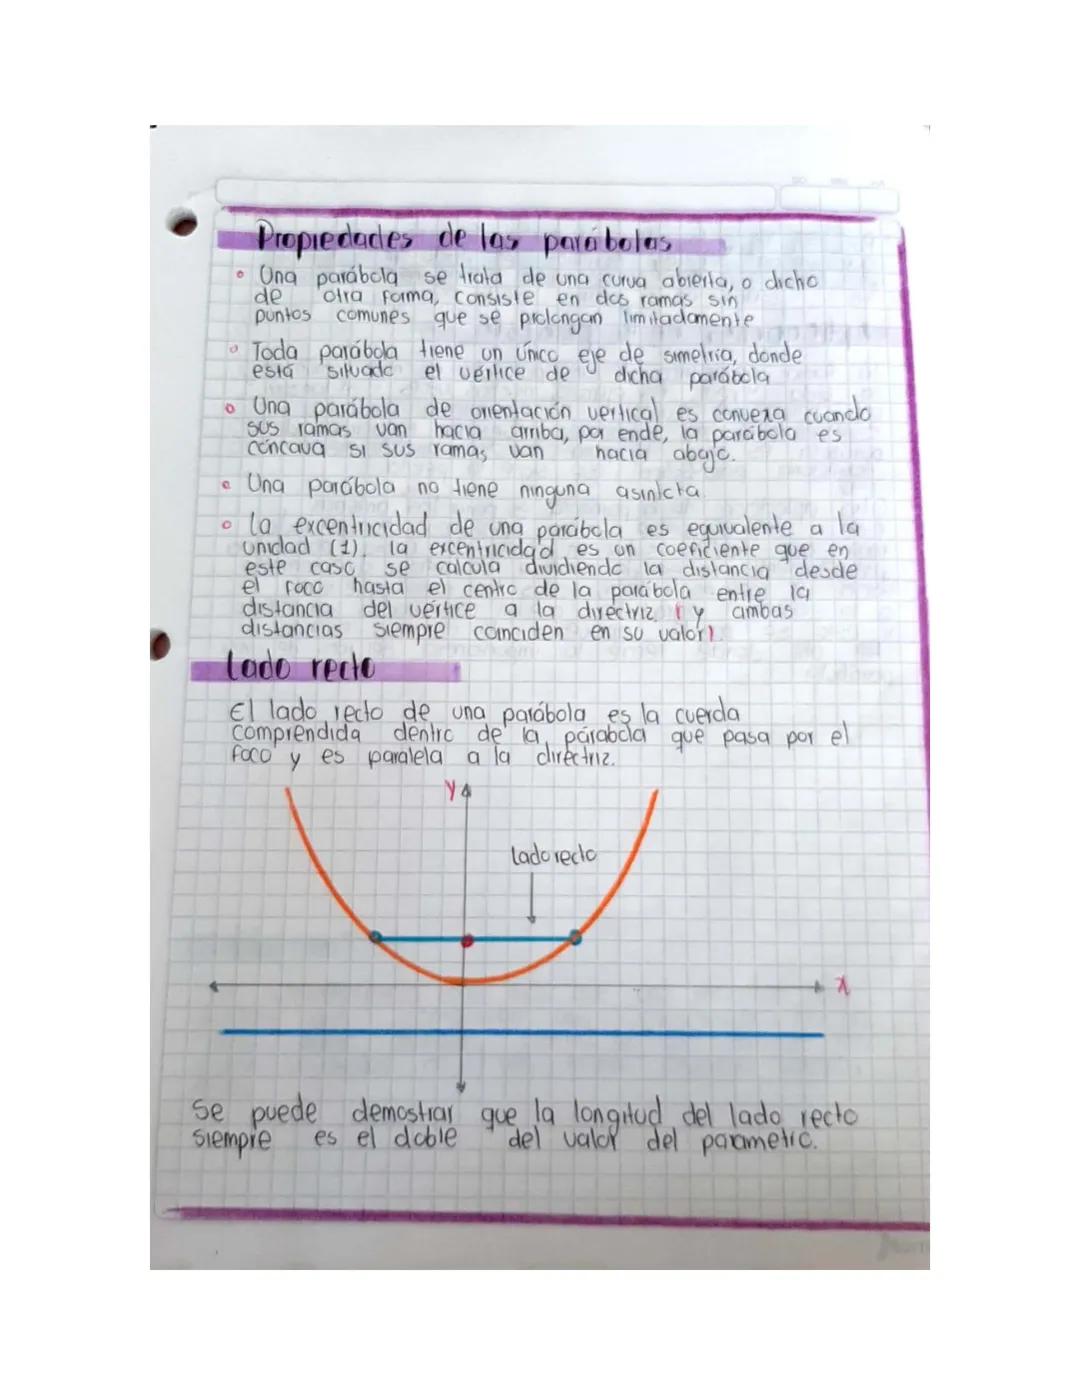 Propiedades de las parábolas
Una parábola se trata de una curva abierta, o dicho
de otra forma, consiste en dos ramas sin
puntos comunes que se prolongan limitadamente
Toda parábola tiene un único eje de simetría, donde
está situado el vértice de dicha parábola
Una parábola de orientación vertical es convexa cuando
sus ramas van hacia arriba, por ende, la parábola es
cóncava si sus ramas van hacia abajo.
Una parábola no tiene ninguna asíntota.
La excentricidad de una parábola es equivalente a la
unidad (1). la excentricidad es un coeficiente que en
este caso se calcula dividiendo la distancia desde
el foco hasta el centro de la parábola entre la
distancia del vértice a la directriz (y ambas
distancias siempre coinciden en su valor).
Lado recto
El lado recto de una parábola es la cuerda
comprendida dentro de la parábola que pasa por el
foco y es paralela a la directriz.
y
lado recto
x
Se puede demostrar que la longitud del lado recto
siempre es el doble del valor del parametro.